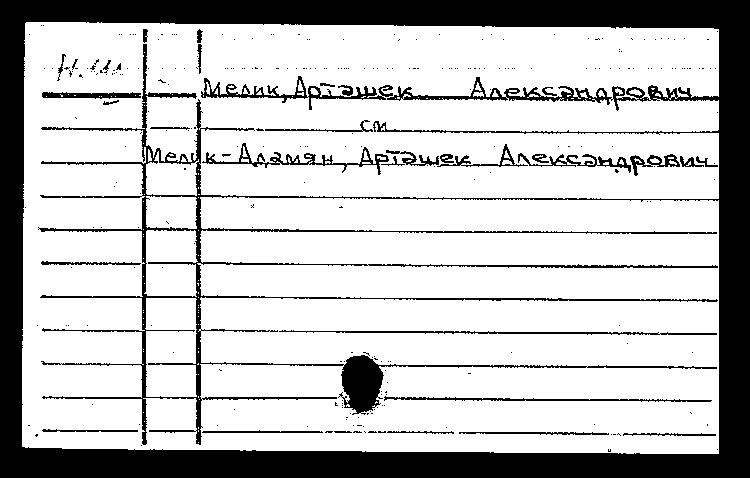 Мелик, Арташек Александрович
см
Мелик-Адамян, Арташек Александрович